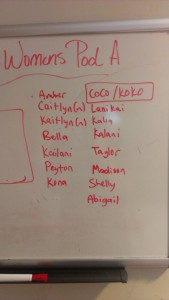 Womens Pool A
Amber
Caitlyn(n)
Kaitlyn(n)
Bella
Kailani
Peyton
Kona
COCO/KOKO
Lanikai
Kalia
Kalani
Taylor
Madison
Shelly
Abigail